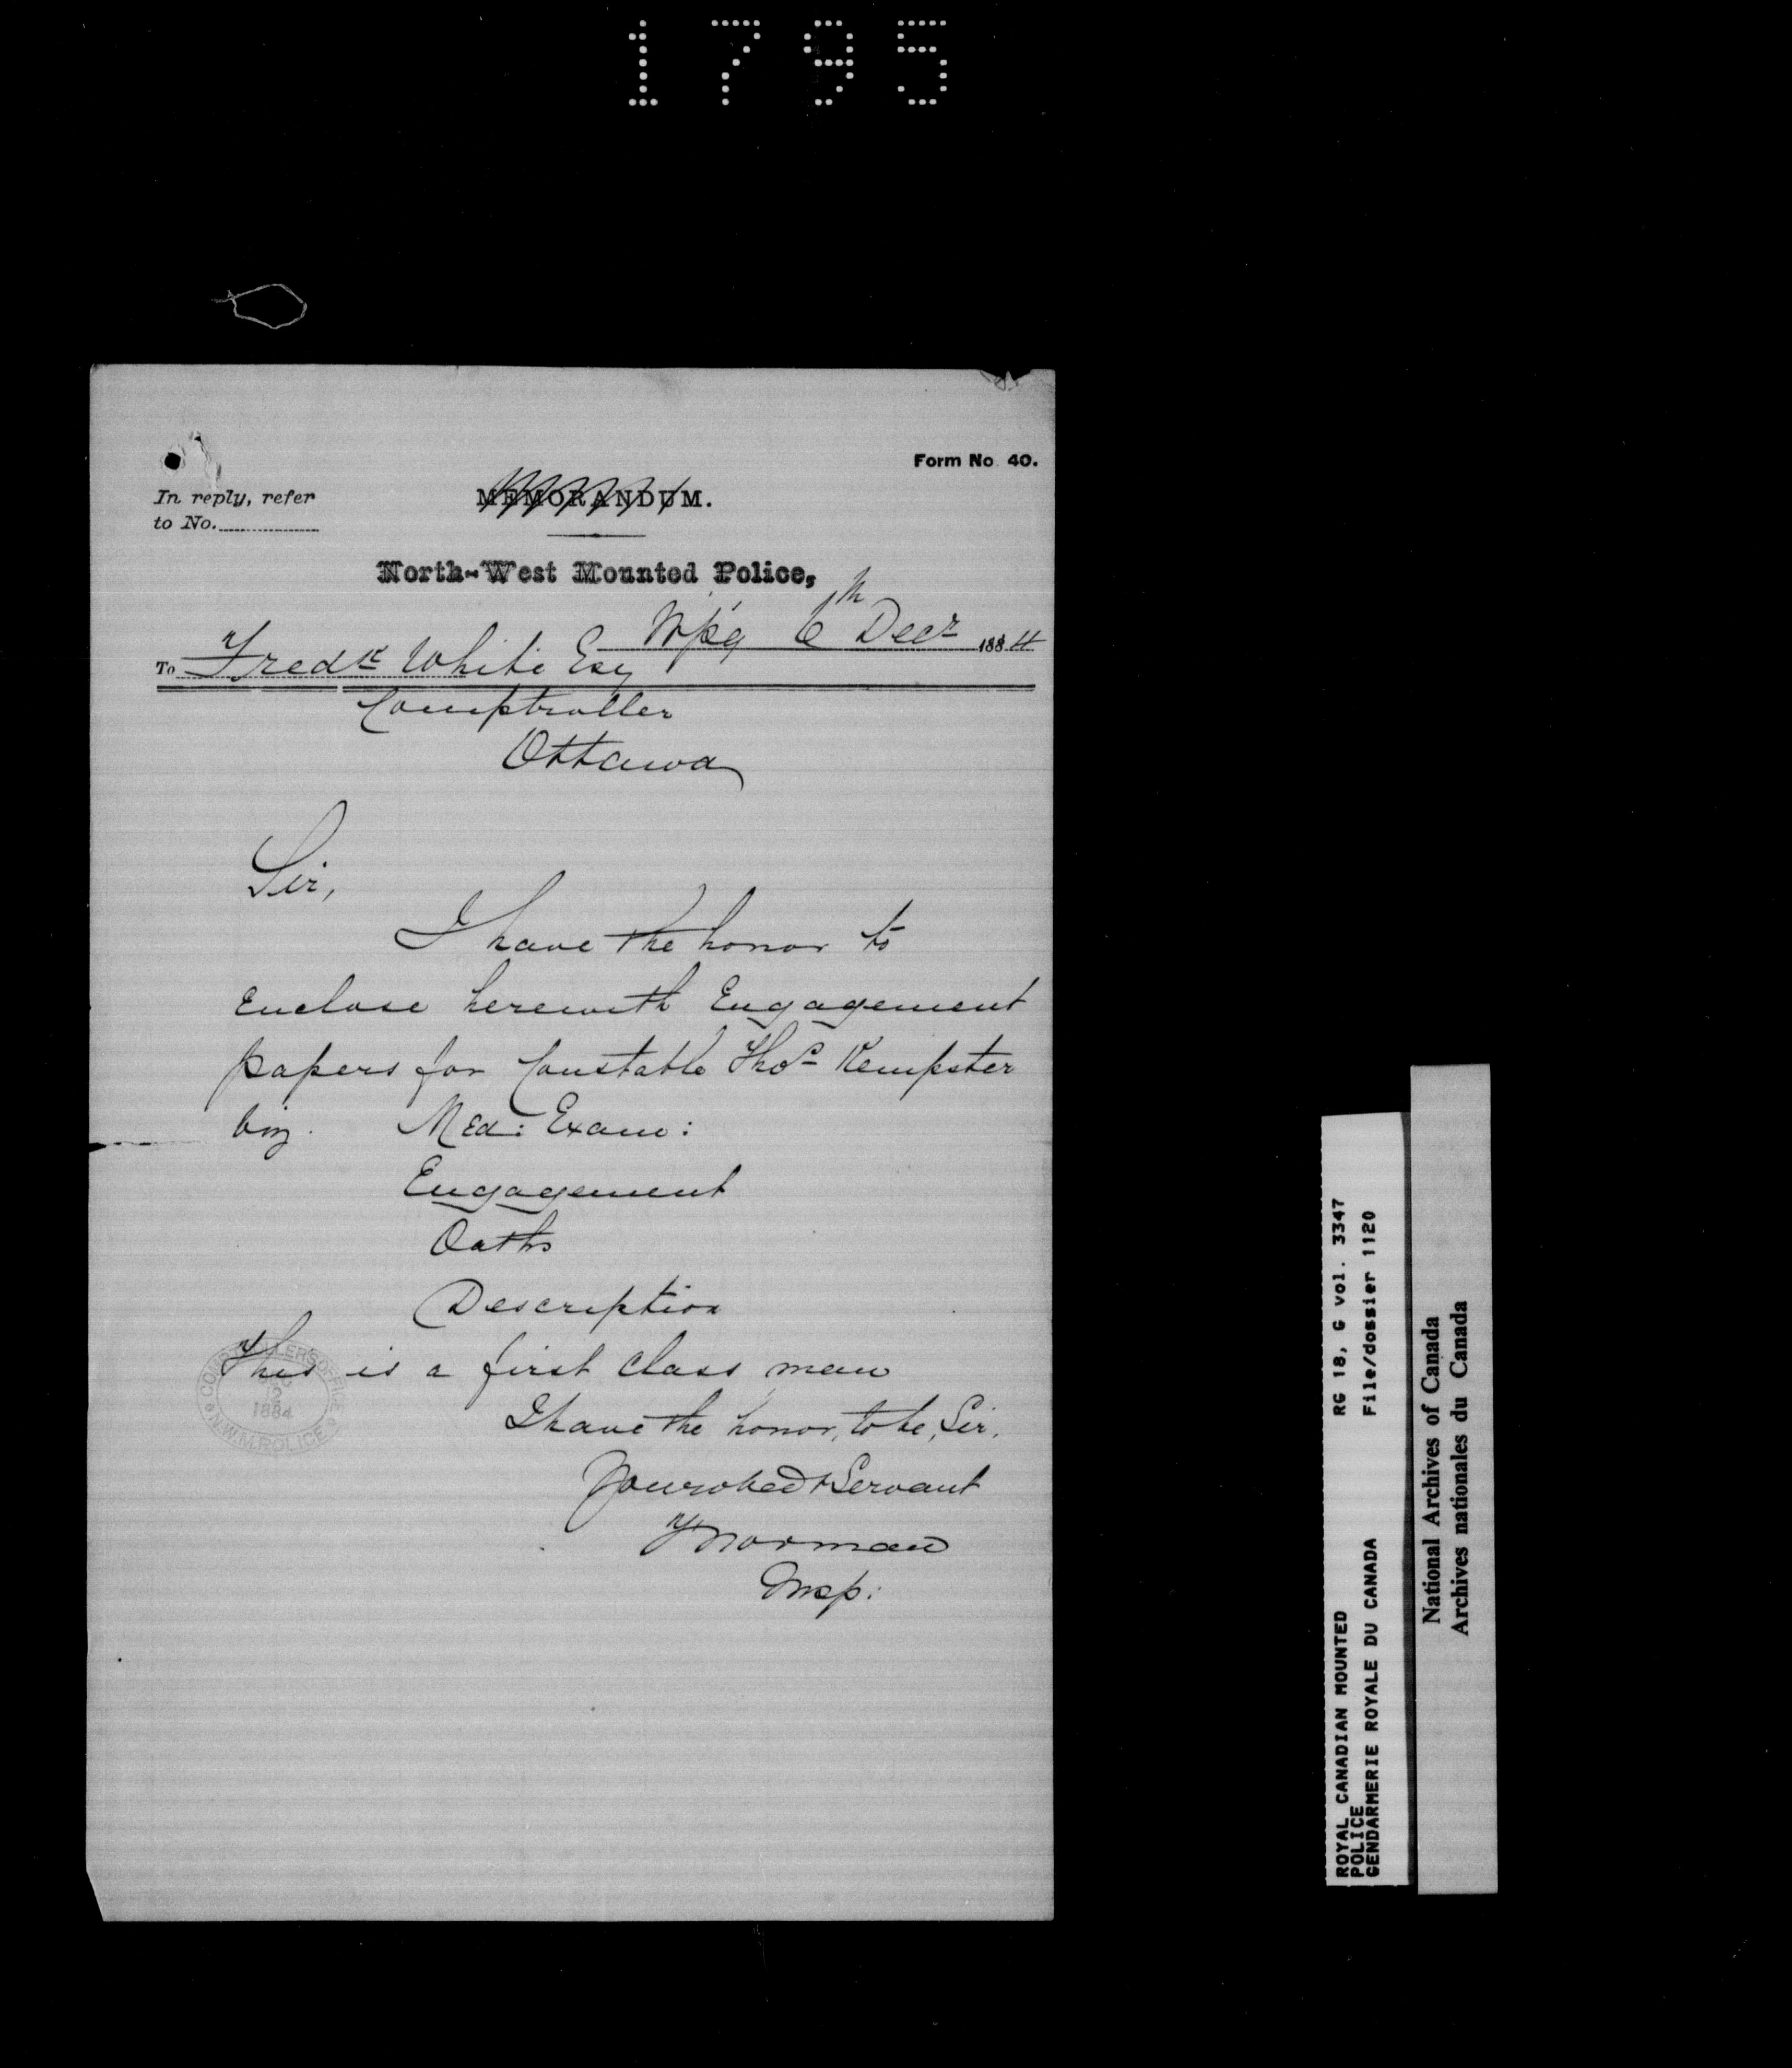 1795
Form No. 40.
In reply, refer
to No.
MEMORANDUM.
North-West Mounted Police,
Wpg 6th Decr 1884
To Fredk White Esq
Comptroller
Ottawa
Sir,
I have the honor to
Enclose herewith Engagement
papers for Constable Thos Kempster
viz. Med: Exam:
Engagement
Oaths
Description
This is a first class man
I have the honor, to be, Sir,
Your obedt Servant
F Norman
Insp:
COMPTROLLER'S OFFICE
1884
N.W.M. POLICE
ROYAL CANADIAN MOUNTED
POLICE
GENDARMERIE ROYALE DU CANADA
RG 18, G vol. 3347
File/dossier 1120
National Archives of Canada
Archives nationales du Canada